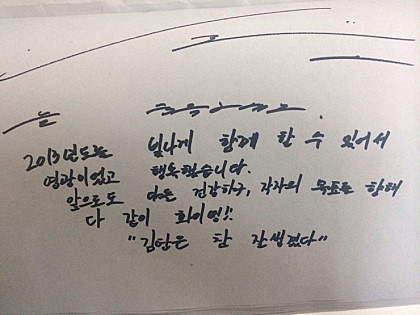 2013년도는 빛나게 함께 한 수 있어서
영광이었고 행복했습니다.
앞으로도 다들 건강하구, 각자의 목표를 향해
다 같이 화이팅!!
"김탄은 참 잘생겼다"